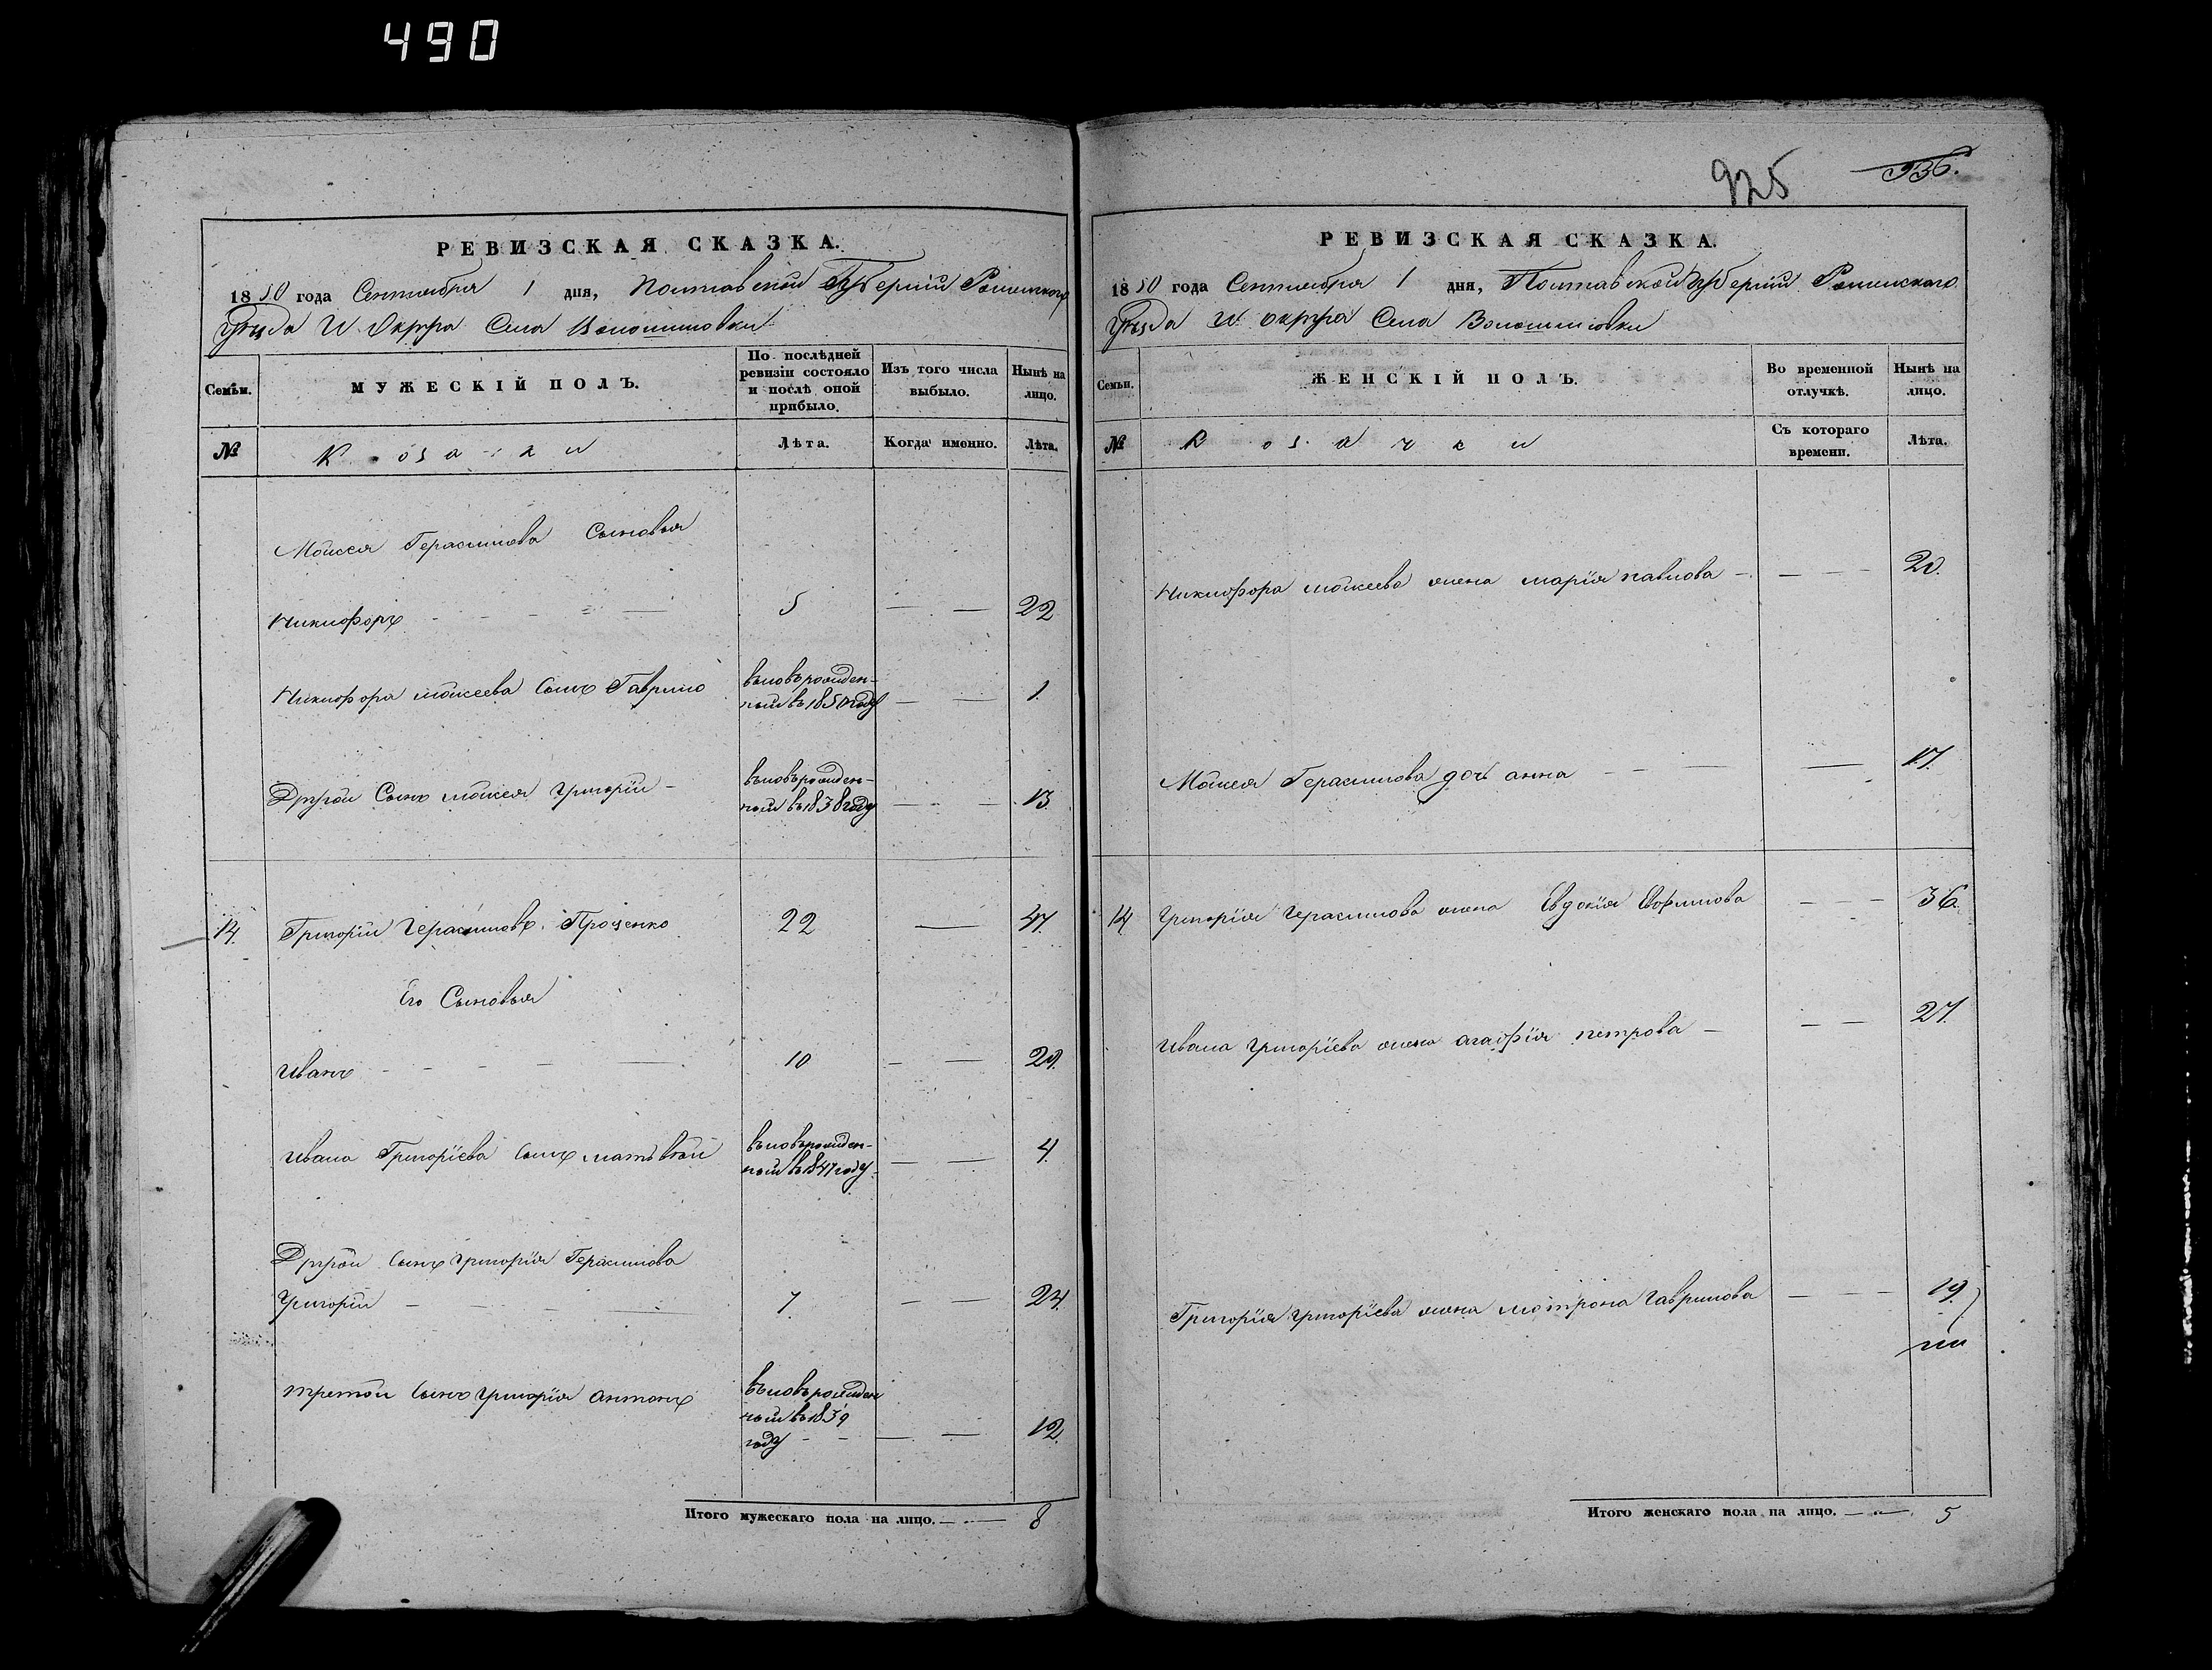 490
РЕВИЗСКАЯ СКАЗКА.
1850 года Сентября 1 дня, Полтавской Губерніи Роменского
Уѣзда Округа Села Волошиновки
Семьи.
МУЖЕСКІЙ ПОЛЪ.
По послѣдней ревизіи состояло и послѣ оной прибыло.
Изъ того числа выбыло.
Нынѣ на лицо.
№
Козаки
Лѣта.
Когда именно.
Лѣта.
Моисея Герасимова Сыновья
Никифоръ - - - 5 — — 22
Никифора Моисеева Сынъ Гаврило вновьрожден-
ный въ 1850 году — — 1.
Другой Сынъ Моисея Григорій - вновьрожден-
ный въ 1838 году — — 13.
14. Григорій Герасимовъ Проценко 22 — 47.
Его Сыновья
Иванъ - - - 10 — — 29.
Ивана Григоріева Сынъ Матвѣй вновьрожден-
ный въ 1847 году — — 4.
Другой Сынъ Григорія Герасимова
Григорій — - - 7. — — 24.
третой Сынъ Григорія Антонъ вновьрожден
ный въ 1839
году - - — — 12.
Итого мужескаго пола на лицо. — — 8
925 936.
РЕВИЗСКАЯ СКАЗКА.
1850 года Сентября 1 дня, Полтавской Губерніи Роменскаго
Уѣзда Округа Села Волошиновки
Семьи.
ЖЕНСКІЙ ПОЛЪ.
Во временной отлучкѣ.
Нынѣ на лицо.
№
Козачки
Съ котораго времени.
Лѣта.
Никифора Моисеева жена Марія Павлова - — — 20.
Моисея Герасимова дочь Анна - - — — 17.
14 Григорія Герасимова жена Евдокія Евфимова — — 36.
Ивана Григоріева жена Агафія Петрова — — — 27.
Григорія Григоріева жена Мотрона Гаврилова — — 19.
Итого женскаго пола на лицо. — — 5